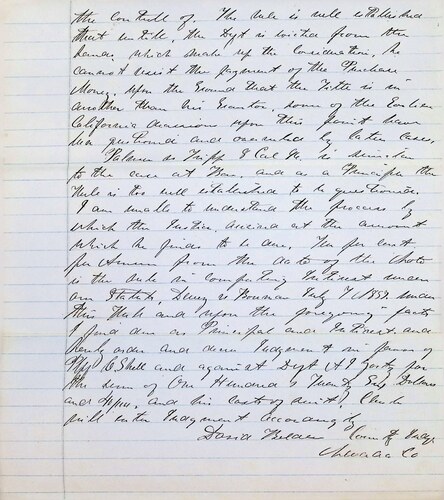 the controll of. The rule is well established
that untill the Dft is evicted from the
land, which make up the consideration, he
cannot resist the payment of the Purchase
Money, upon the Ground that the Title is in
another than his Grantor, some of the Earlier
California decisions upon this point have
been questioned and overruled by later cases.
Palmer vs Tripp 6 Cal is similar
to the case at Bar, and as a Principle the
rule is too well established to be questioned.
I am unable to understand the process by
which the Justice arrived at the amount
which he finds to be due. Ten per cent
per Annum from the date of the Note
is the rule in computing Interest under
our Statute, Bowman July 7, 1857. under
this Rule and upon the foregoing facts
I find due as Principal and Interest, and
order and Judgment in favor of
Plff Shell and against Dft A J
the sum of One Hundred & Twenty Dollars
and and his costs of suit, Clerk
will enter Judgment accordingly
David Belden County Judge
Nevada Co